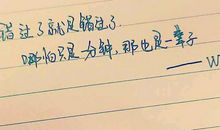 错过了就是错过了
哪怕只是一分钟，那也是一辈子
——W